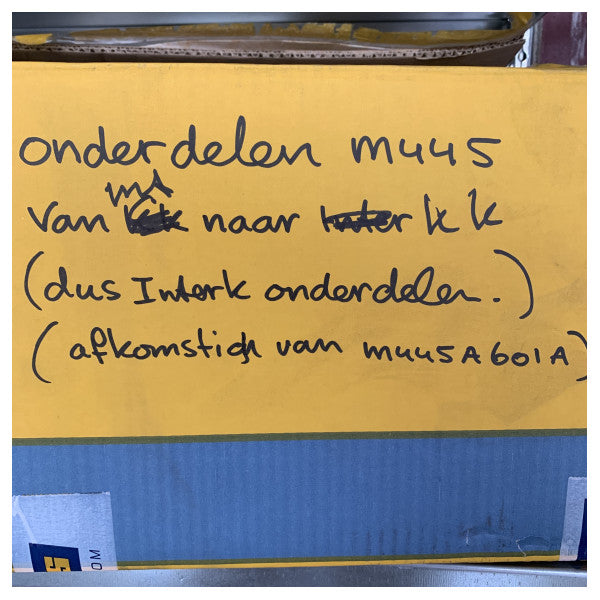 onderdelen M445
van int naar kk
(dus Interk onderdelen.)
(afkomstig van M445A601A)
OM